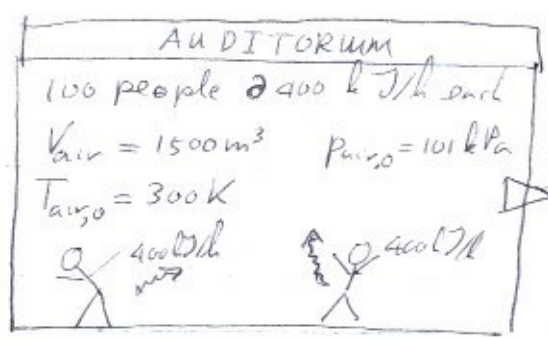 AUDITORIUM
100 people @ 400 kJ/h each
Vair = 1500 m³ Pair,o = 101 kPa
Tair,o = 300 K
400kJ/h 400kJ/h